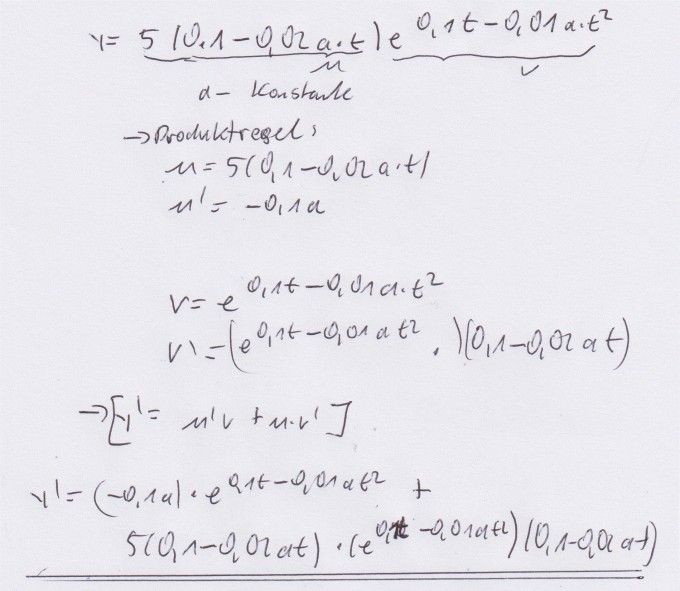 y= 5 (0.1-0,02 a·t) e^0,1t-0,01a·t²
u v
a- Konstante
→ Produktregel:
u = 5(0,1-0,02 a·t)
u' = -0,1a
v = e^0,1t-0,01a·t²
v' = (e^0,1t-0,01at² ·)(0,1-0,02at)
→ [y' = u'v + u·v']
y' = (-0,1a)·e^0,1t-0,01at² +
5(0,1-0,02at)·(e^0,1t-0,01at²)(0,1-0,02at)